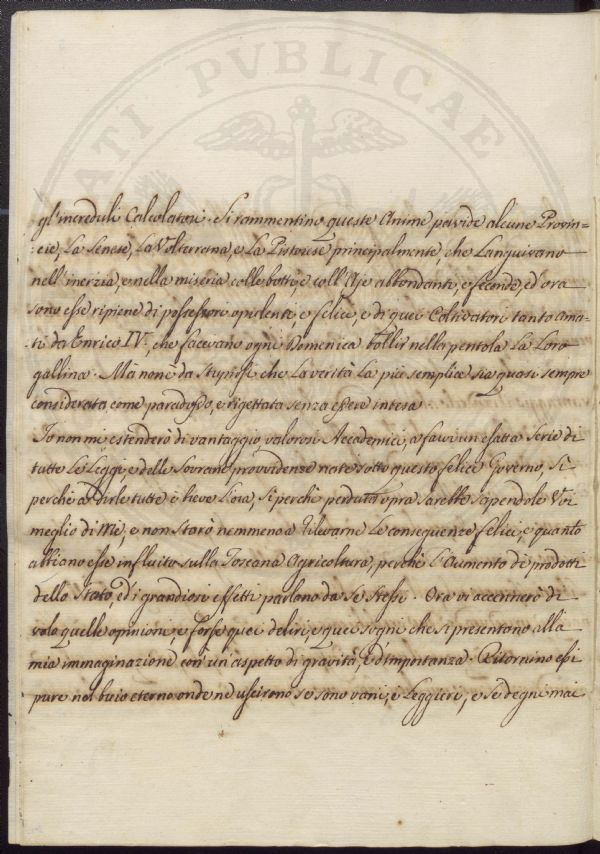 ATI PVBLICAE
gl'increduli Calcolatori. Si rammentino queste Anime pavide alcune Provin=
cie, La Senese, La Volterrana, e La Pistoiese principalmente, che Languivano
nell'inerzia, e nella miseria colle botti, e coll'Aje abbondanti, e feconde, ed ora
sono esse ripiene di possessori opulenti, e felici, e di quei Coltivatori tanto ama=
ti da Enrico IV., che facevano ogni Domenica bollir nella pentola La Loro
gallina. Mà non è da stupirsi che La verità La più semplice sia quasi sempre
considerata come paradosso, e rigettata senza essere intesa
Io non mi estenderò di vantaggio, valorosi Accademici, a farvi un esatta Serie di
tutte Le Leggi, e delle Sovrane providenze nate sotto questo felice Governo, Si
perchè a dirle tutte è lieve Cosa, si perchè perduta opra sarebbe sapendole Voi
meglio di Me, e non Starò nemmeno a rilevarne Le conseguenze felici, e quanto
abbiano esse influito sulla Toscana Agricoltura, perchè L'Aumento di prodotti
dello Stato, e di grandiosi effetti parlano da se Stessi. Ora vi accennerò di
volo quelle opinioni, e forse quei deliri, e quei sogni che si presentono alla
mia immaginazione con un aspetto di gravità, e d'importanza. Ritornino essi
pure nel buio eterno onde ne uscirono se sono vani, e Leggieri, e se degni mai